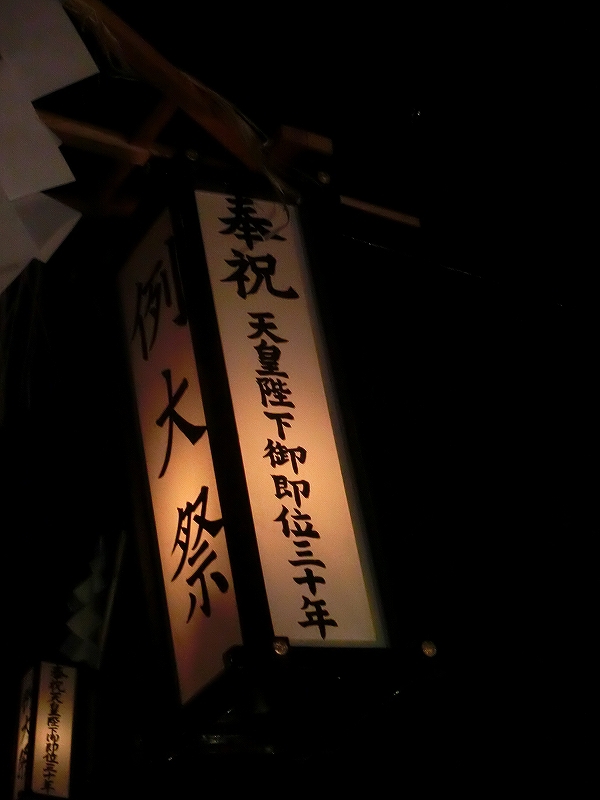 奉祝
天皇陛下御即位三十年
例大祭
奉祝天皇陛下御即位三十年
例大祭